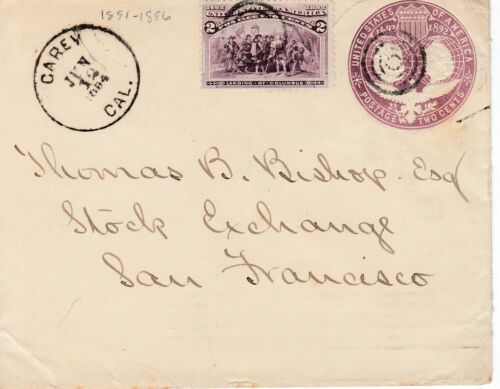 1891-1896
CAREY
JUN
12
1894
CAL.
1492 UNITED STATES OF AMERICA 1892
2 2
LANDING OF COLUMBUS
UNITED STATES OF AMERICA
1492 1892
POSTAGE TWO CENTS
Thomas B. Bishop. Esq
Stock Exchange
San Francisco